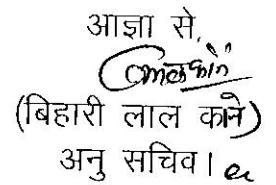 आज्ञा से,
(बिहारी लाल काने)
अनु सचिव।